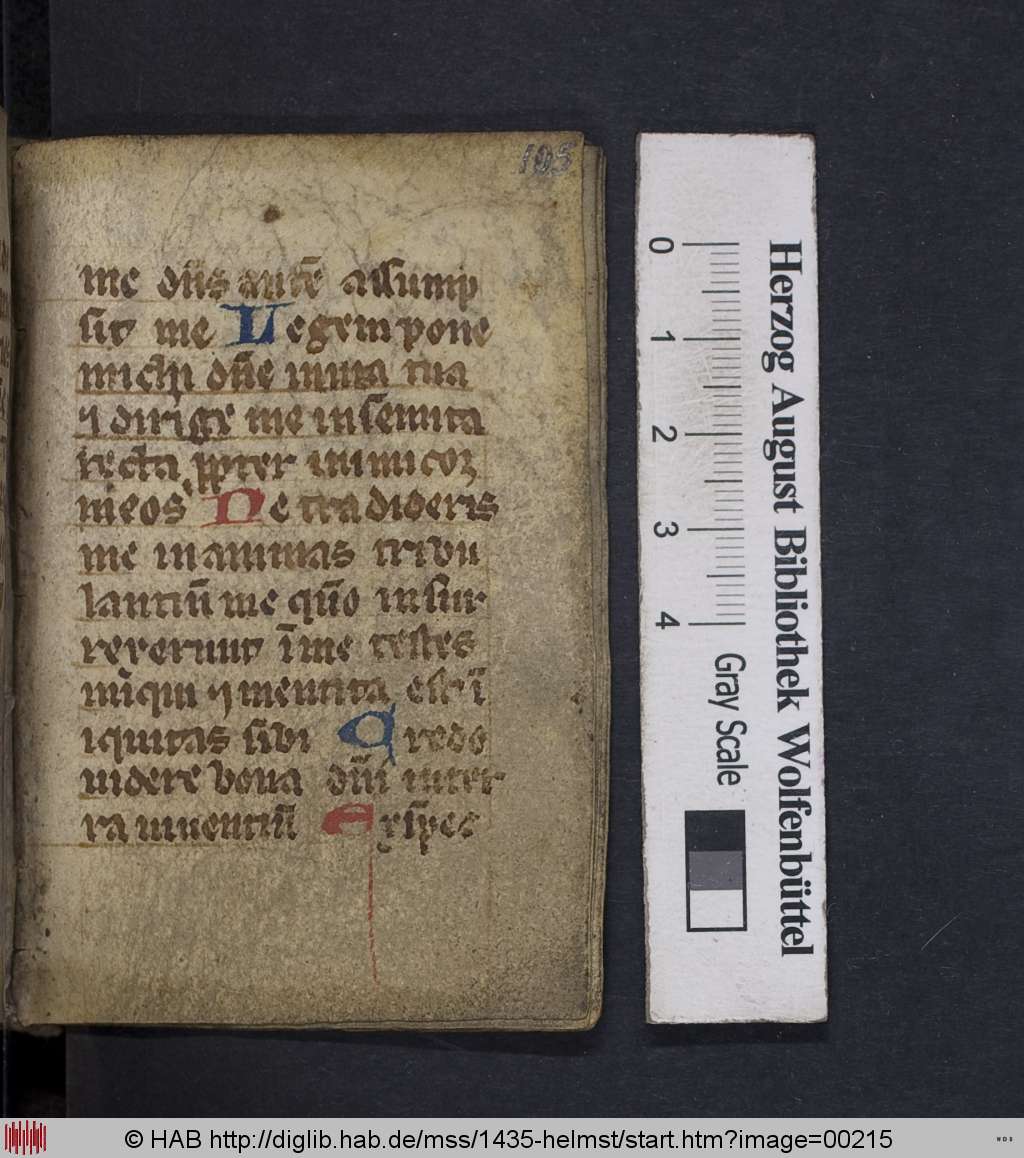 105
me dn̄s autē assump
sit me Legem pone
michi dn̄e in uia tua
⁊ dirige me in semita
recta ꝓpter inimicoꝝ
meos Ne tradideris
me in animas tribu
lantiū me qm̄o insur
rexerunt ī me testes
iniqui ⁊ mentita est ī
iquitas sibi Credo
uidere bona dn̄i in ter
ra uiuentiū Exspec
Herzog August Bibliothek Wolfenbüttel
0 1 2 3 4
Gray Scale
© HAB http://diglib.hab.de/mss/1435-helmst/start.htm?image=00215